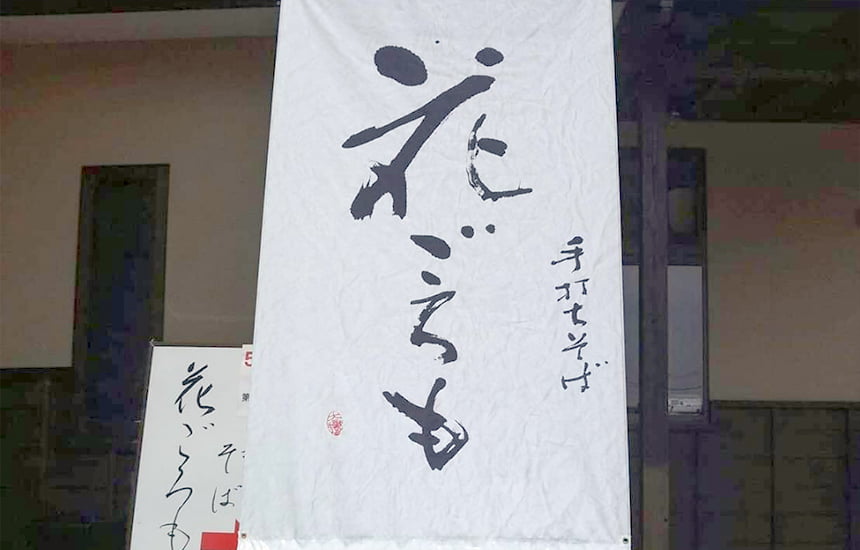 手打ちそば
花ごろも
5
第
そば
花ごろも